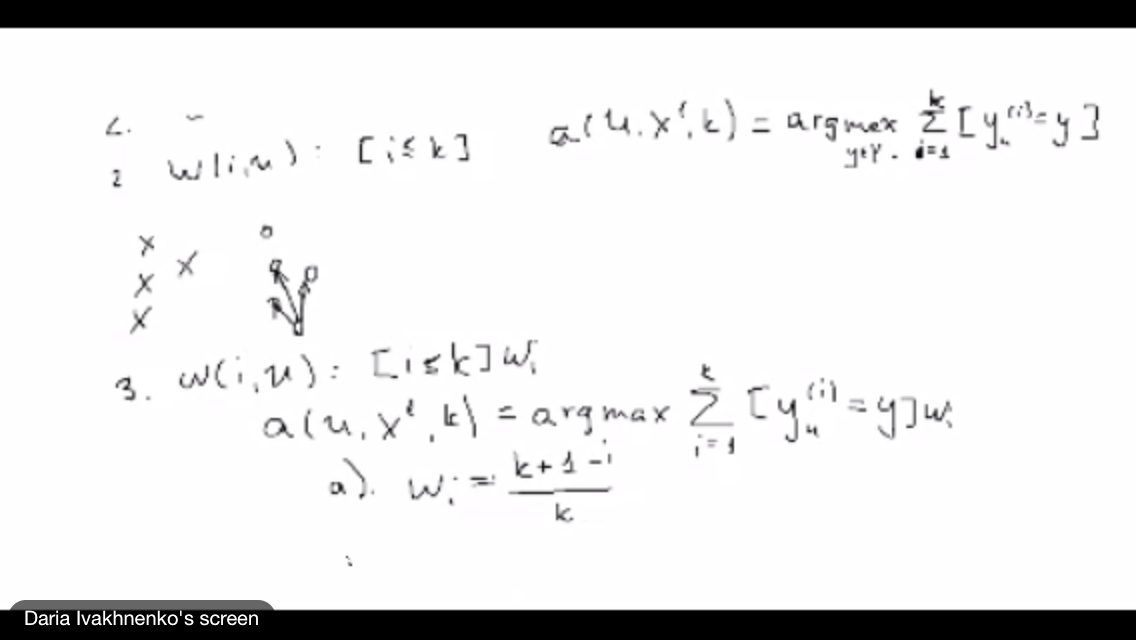 2. w(i,u) : [i ≤ k] a(u, xˡ, k) = argmax y∈Y Σ i=1 k [y_u^(i) = y]
x x x x o
3. w(i,u) : [i ≤ k] wᵢ
a(u, xˡ, k) = argmax Σ i=1 k [y_u^(i) = y] wᵢ
a). wᵢ = k+1-i / k
Daria Ivakhnenko's screen